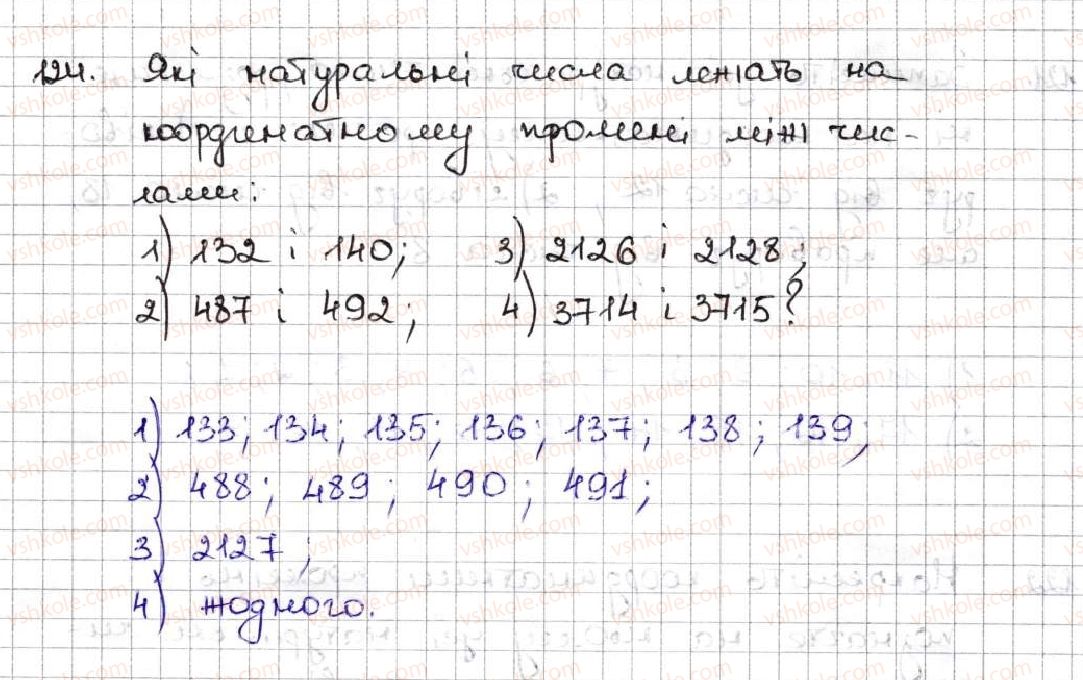 124. Які натуральні числа лежать на
координатному промені між чис-
лами:
1) 132 і 140; 3) 2126 і 2128;
2) 487 і 492; 4) 3714 і 3715?
1) 133; 134; 135; 136; 137; 138; 139;
2) 488; 489; 490; 491;
3) 2127;
4) жодного.